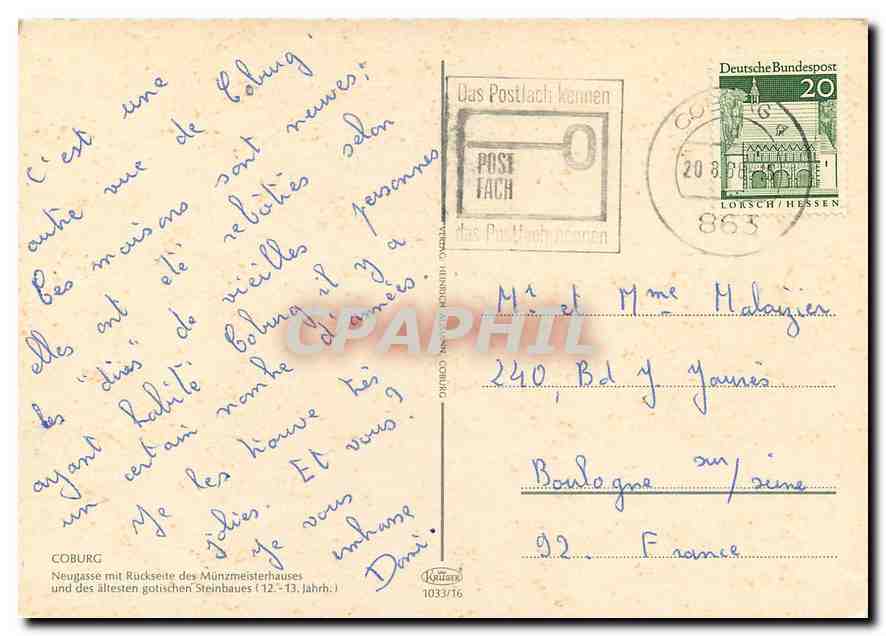 C'est une
autre vue de Coburg.
Ces maisons sont neuves;
elles ont été rebâties selon
les "dires" de vieilles personnes
ayant habité Coburg il y a
un certain nombre d'années.
Je les trouve très
jolies. Et vous?
Je vous
embrasse
Dani.
COBURG
Neugasse mit Rückseite des Münzmeisterhauses
und des ältesten gotischen Steinbaues (12.-13. Jahrh.)
VERLAG HEINRICH COBURG
KRÜGER
1033/16
Das Postfach kennen
POST
FACH
das Postfach nennen
COBURG
20.8.66
863
Deutsche Bundespost
20
LORSCH/HESSEN
CPAPHIL
Mr et Mme Malaizier
240, Bd J. Jaurès
Boulogne sur/seine
92. France